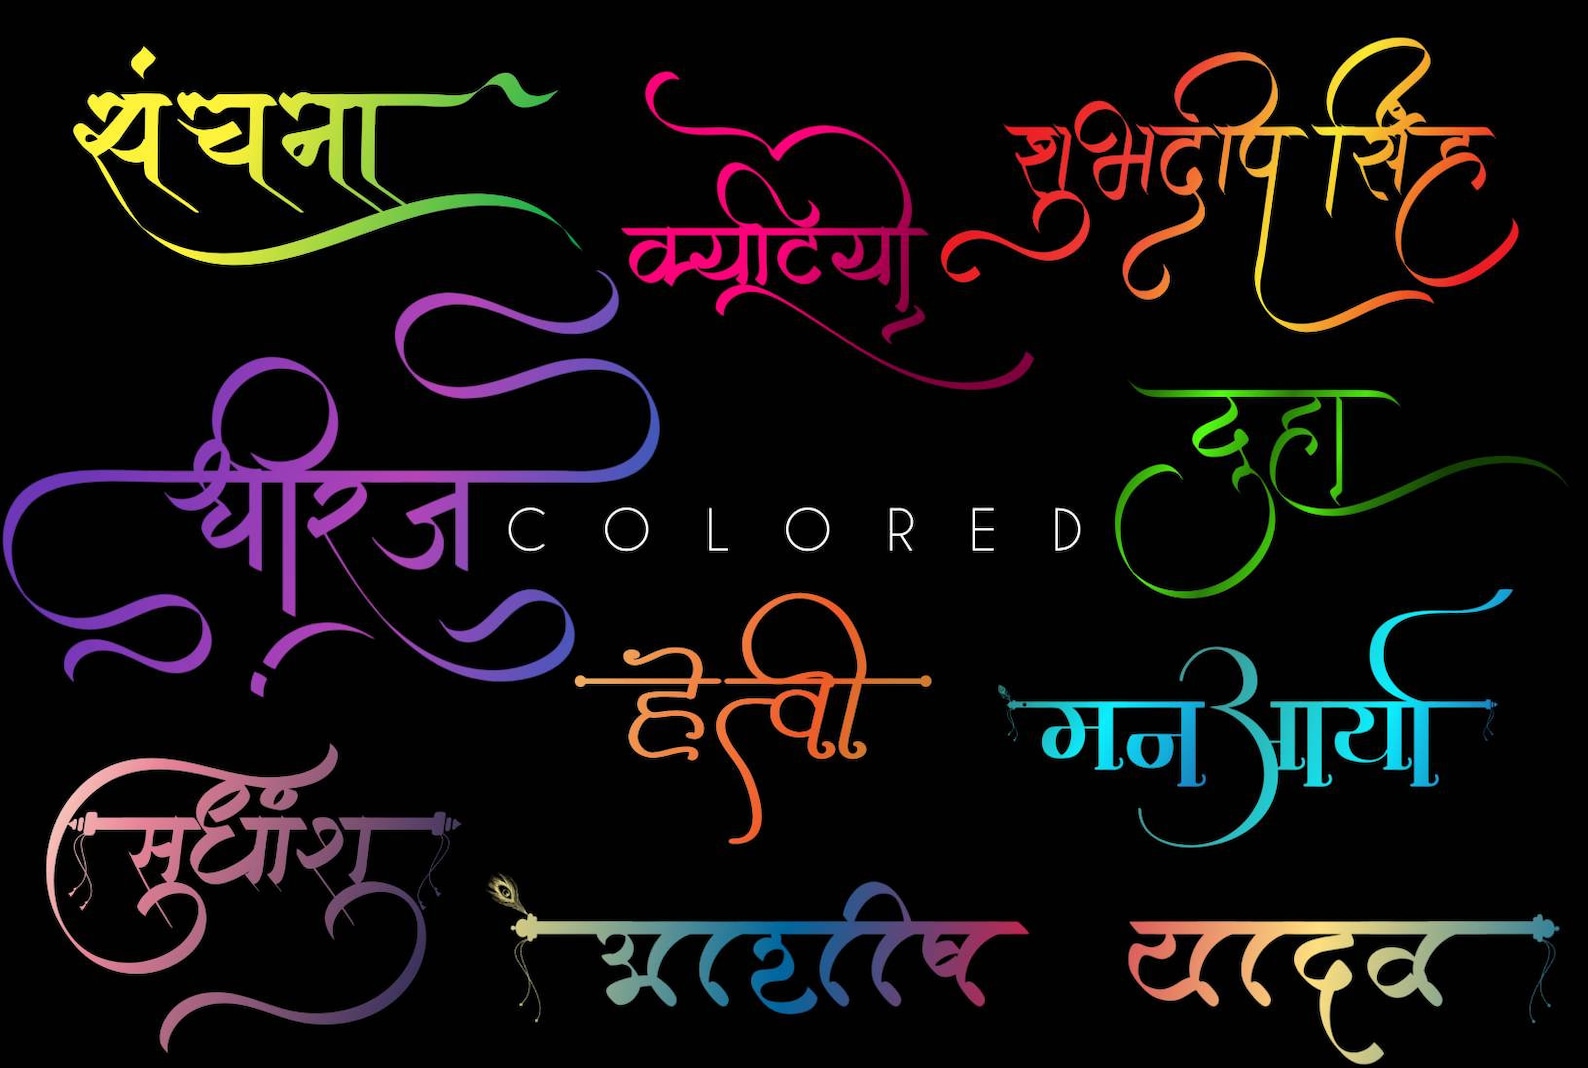 संचना
क्यूटियी
शुभदीप सिंह
धीरज
दूहा
COLORED
हेत्वी
मन आर्या
सुधाँशु
आशीष यादव